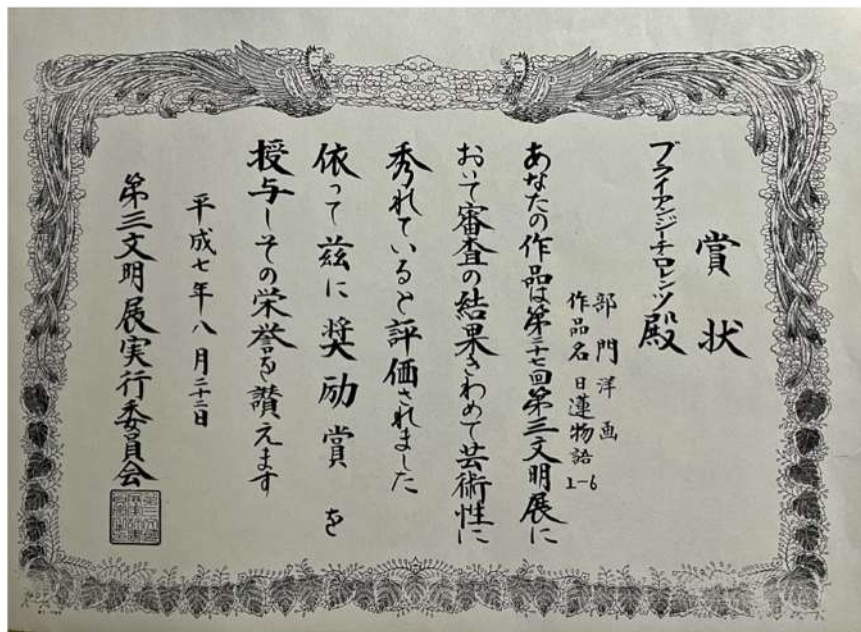 賞状
ブライアンジーチロレンツ殿
部門洋画
作品名日蓮物語1-6
あなたの作品は第二十七回第三文明展に
おいて審査の結果きわめて芸術性に
秀れていると評価されました
依って茲に奨励賞を
授与しその栄誉を讃えます
平成七年八月二十二日
第三文明展実行委員会